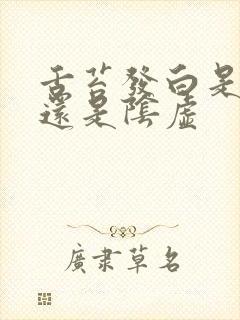 舌苔發白是
還是陰虛
廣肅草名